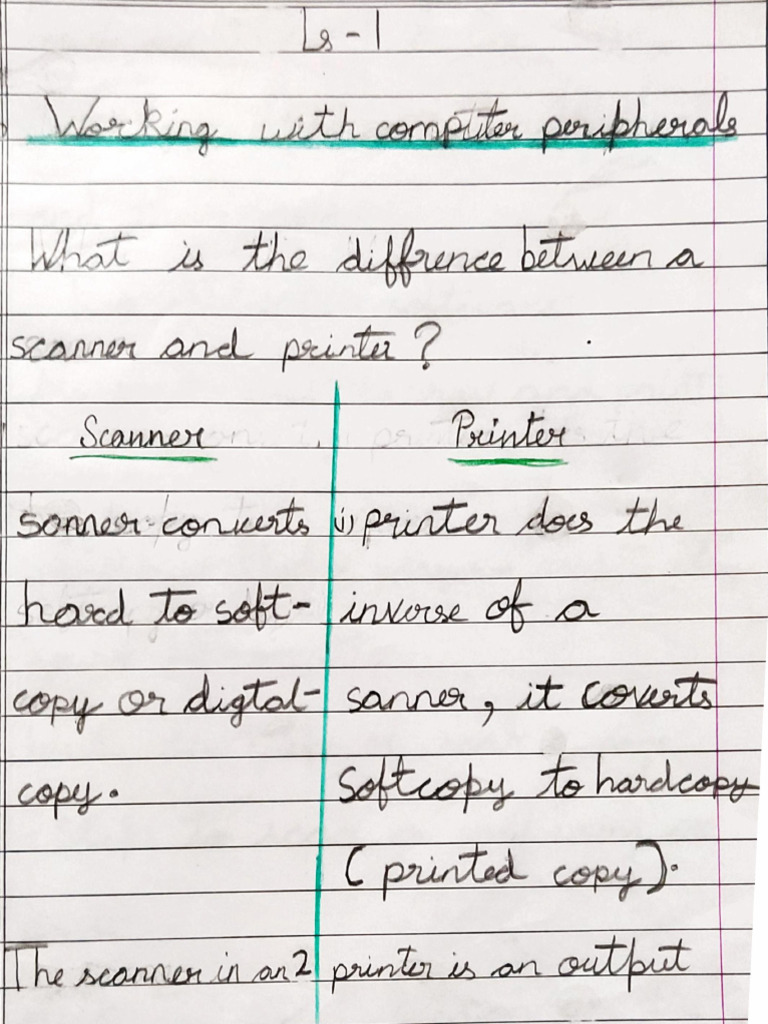 Ls-1
Working with computer peripherals
What is the diffrence between a
scanner and printer?
Scanner
Printer
sonner converts
hard to soft-
copy or digtal-
copy.
i) printer does the
inverse of a
sanner, it coverts
Softcopy to hardcopy
(printed copy).
The scanner in an
2 printer is an output